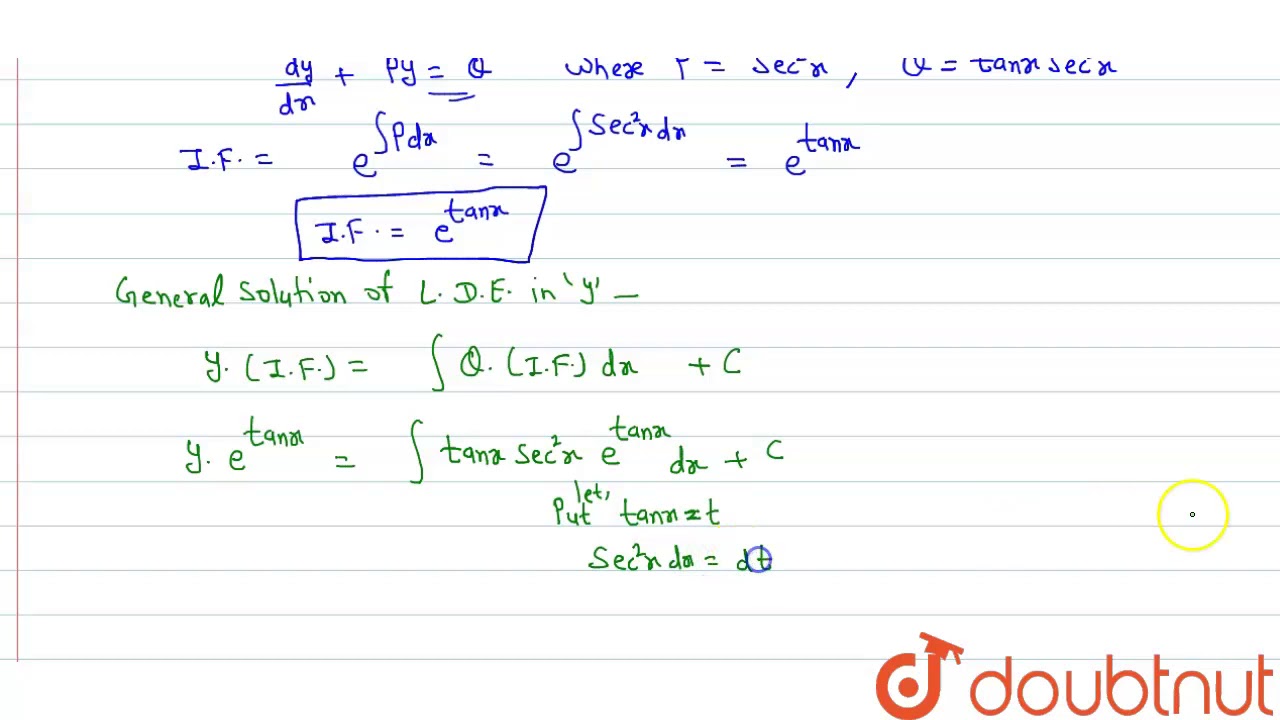 dy/dx + Py = Q where P = sec²x, Q = tanx sec²x
I.F. = e^∫Pdx = e^∫Sec²x dx = e^tanx
I.F. = e^tanx
General Solution of L.D.E. in 'y' –
y. (I.F.) = ∫ Q. (I.F.) dx + C
y. e^tanx = ∫ tanx Sec²x e^tanx dx + C
Put let, tanx = t
Sec²x dx = dt
doubtnut